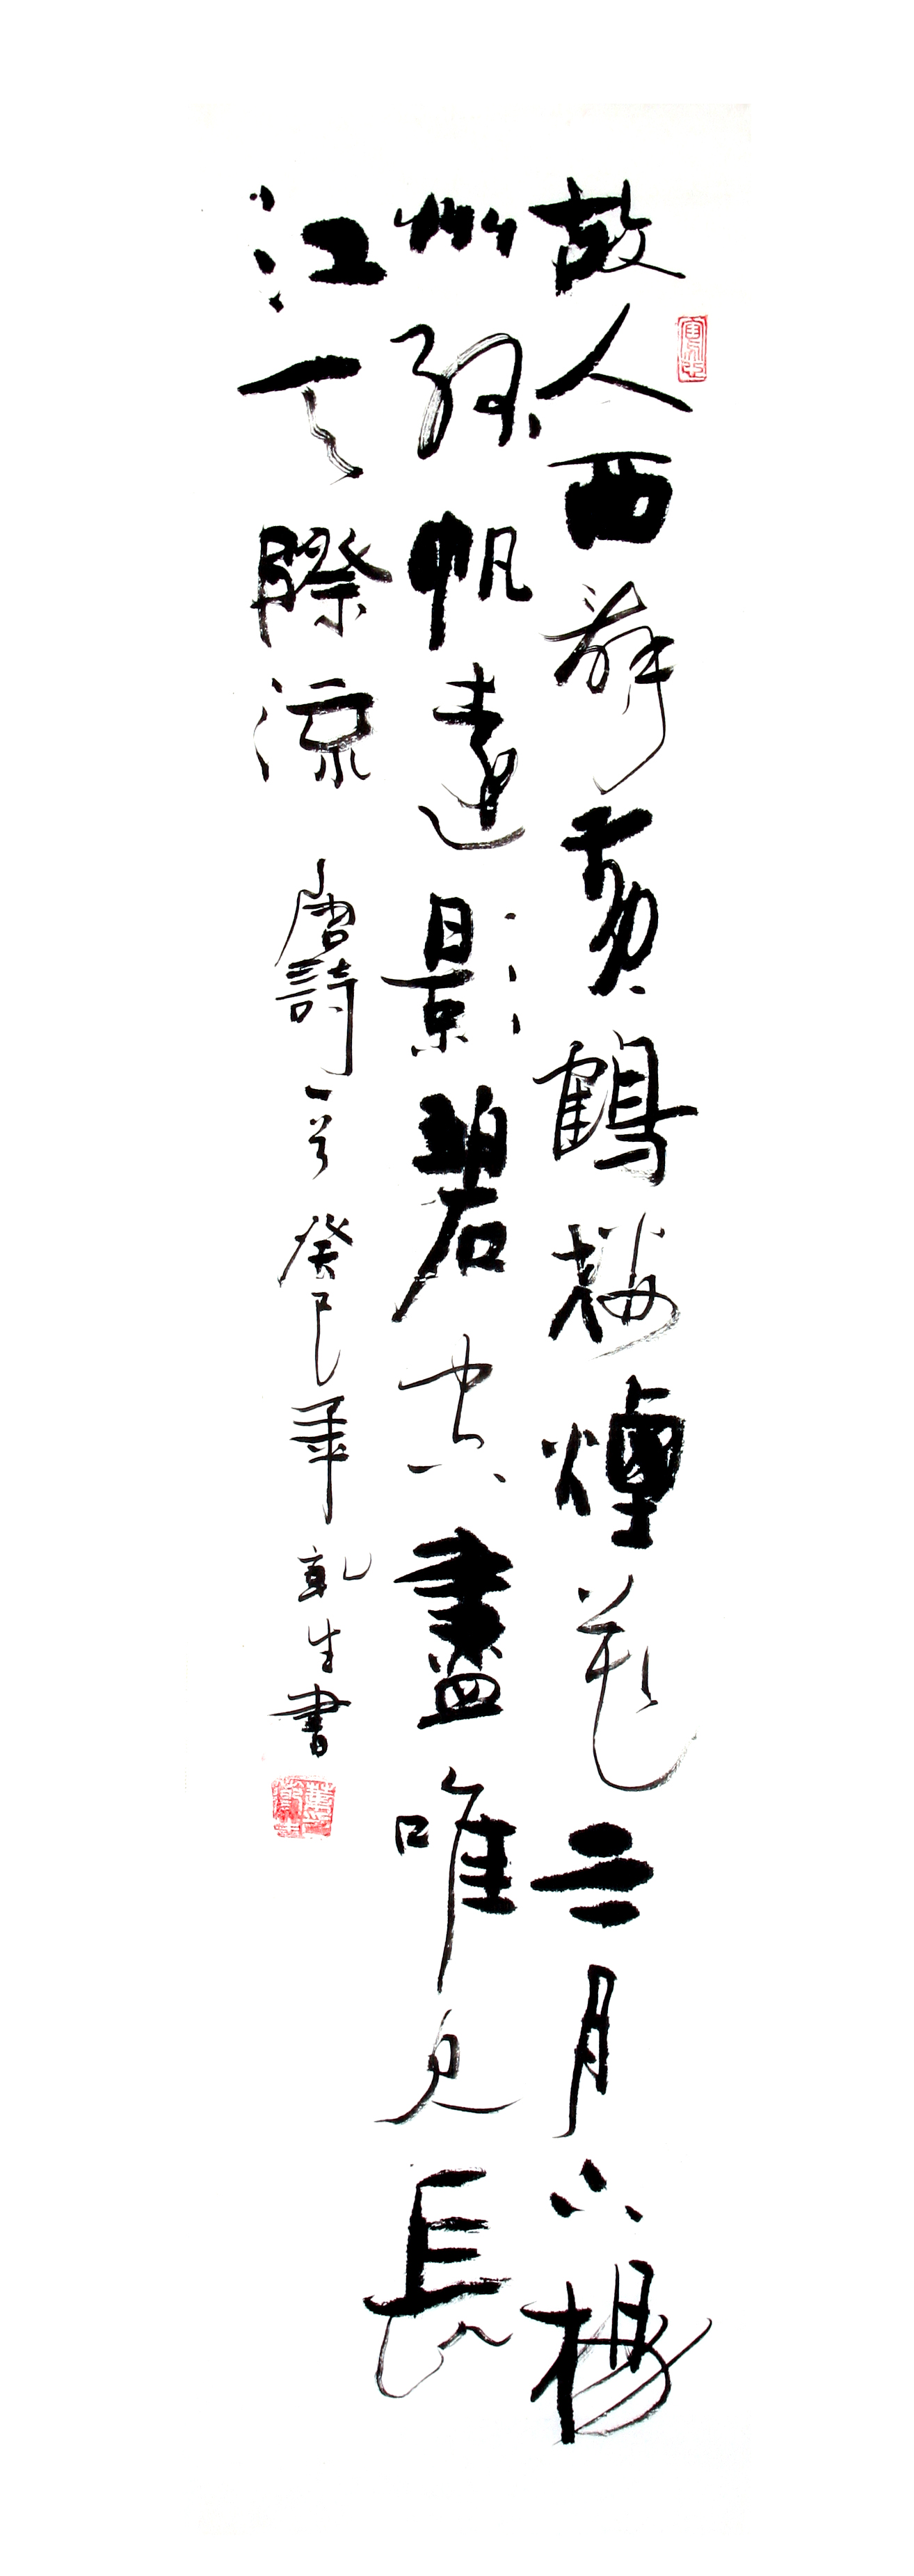 故人西辭黃鶴樓煙花三月下楊
州孤帆遠影碧空盡唯見長
江天際流 唐詩一首 癸巳年 乾生書